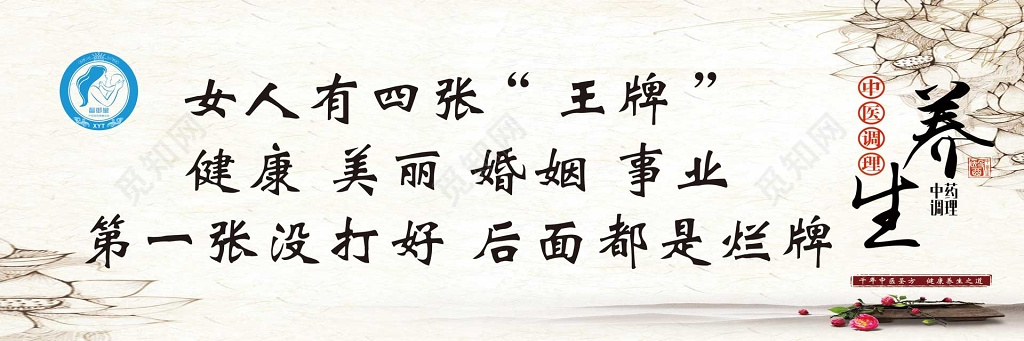 女人有四张“王牌”
健康 美丽 婚姻 事业
第一张没打好 后面都是烂牌
中医调理
养生
中药
调理
千年中医圣方 健康养生之道
XYT
觅知网
觅知网
觅知网